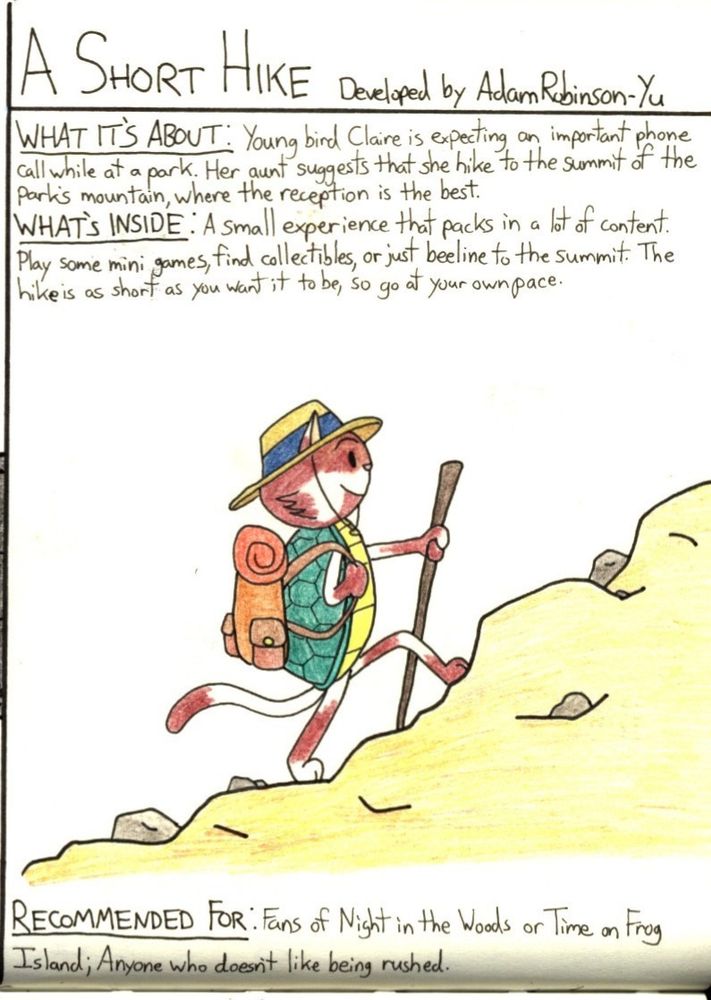 A SHORT HIKE Developed by Adam Robinson-Yu
WHAT IT'S ABOUT: Young bird Claire is expecting an important phone
call while at a park. Her aunt suggests that she hike to the summit of the
park's mountain, where the reception is the best.
WHAT'S INSIDE: A small experience that packs in a lot of content.
Play some mini games, find collectibles, or just beeline to the summit. The
hike is as short as you want it to be, so go at your own pace.
RECOMMENDED FOR: Fans of Night in the Woods or Time on Frog
Island; Anyone who doesn't like being rushed.